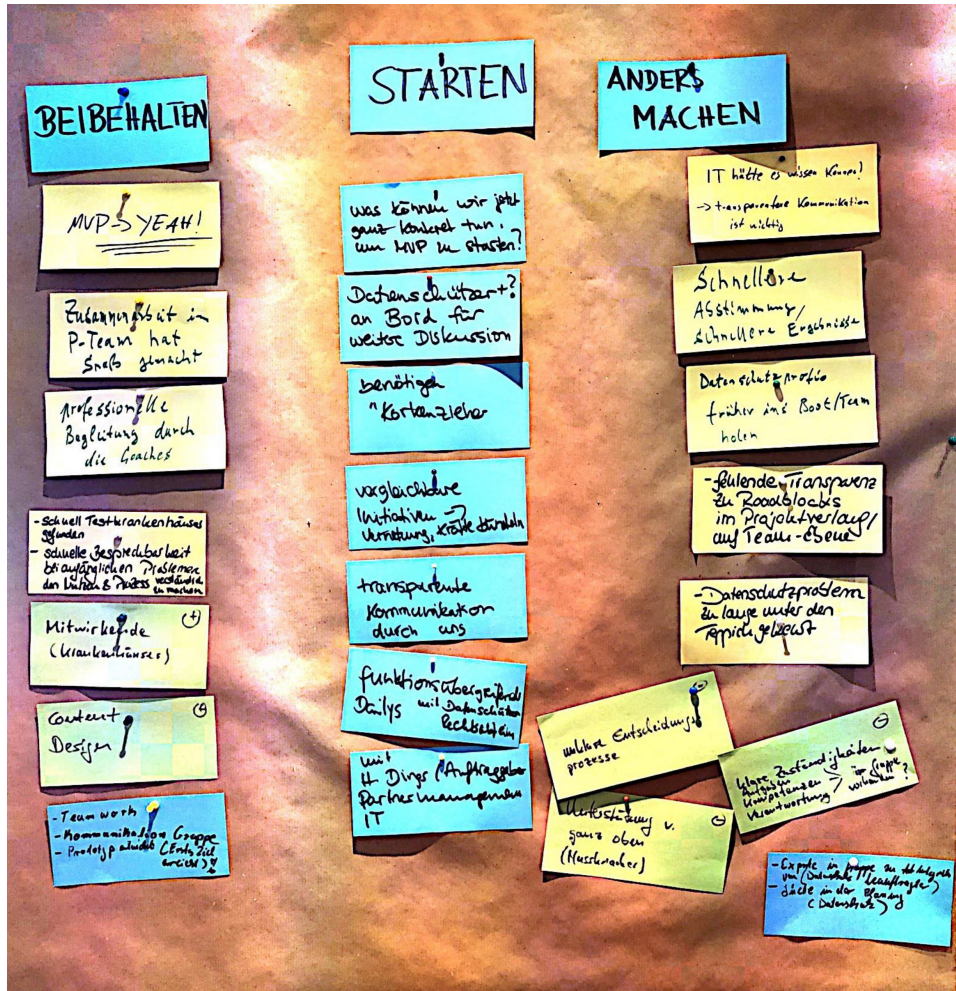 BEIBEHALTEN
MVP -> YEAH!
Zusammenarbeit im
P-Team hat
Spaß gemacht
professionelle
Begleitung durch
die Coaches
- schnell Testkrankenhäuser
gefunden
- schnelle Besprechbarkeit
bei anfänglichen Problemen
den Nutzen & Prozess verständlich
zu machen
Mitwirkende
(Krankenhäuser)
Content
Design
- Teamwork
- Kommunikation Gruppe
- Prototyp (Erstes Ziel
erreicht)
STARTEN
was können wir jetzt
ganz konkret tun,
um MVP zu starten?
Datenschützer +?
an Bord für
weitere Diskussion
benötigen
"Korkenzieher
vergleichbare
Initiativen ->
Vernetzung, Kräfte bündeln
transparente
Kommunikation
durch uns
funktionsübergreifende
Dailys mit Datenschützern
mit
H. Dings / Auftraggeber
Partnermanagement
IT
ANDERS
MACHEN
IT hätte es wissen können!
-> transparentere Kommunikation
ist wichtig
Schnellere
Abstimmung/
schnellere Ergebnisse
Datenschutzprofis
früher ins Boot/Team
holen
- fehlende Transparenz
zu Roadblocks
im Projektverlauf/
auf Team-Ebene
- Datenschutzproblem
zu lange unter den
Teppich gekehrt
Entscheidungs
prozesse
klare Zuständigkeiten
Aufgaben
Kompetenzen > in Gruppe
Verantwortung vorhanden?
Unterstützung v.
ganz oben
(Nussknacker)
- Experte in Gruppe zu
(Datenschutz beauftragter)
- Lücke in der Planung
(Datenschutz)